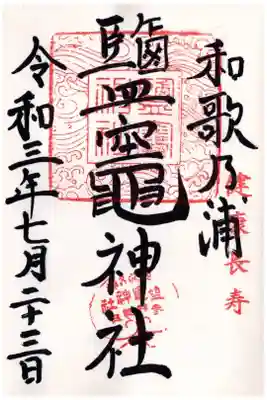 和歌乃浦
健康長寿
鹽竈神社
令和三年七月二十三日